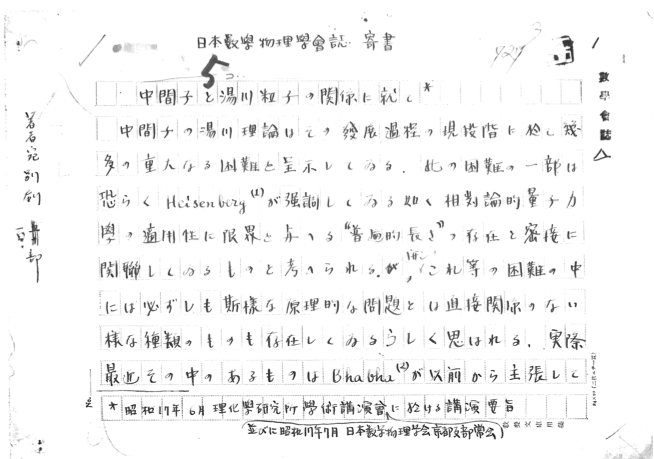 日本數學物理學會誌 寄書
5
中間子と湯川粒子の関係に就て*
中間子の湯川理論はその發展過程の現段階に於て幾
多の重大なる困難を呈示してゐる。此の困難の一部は
恐らく Heisenberg(1) が强調してゐる如く相對論的量子力
學の適用性に限界を与へる"普遍的長さ"の存在と密接に
関聯してゐるものと考へられるが、これ等の困難の中
には必ずしも斯様な原理的な問題とは直接関係のない
様な種類のものも存在してゐるらしく思はれる。実際
最近その中のあるものは Bhabha(2) が以前から主張して
* 昭和17年6月理化學研究所學術講演會に於ける講演要旨
並びに昭和17年7月 日本数学物理学会京都支部常会)
數學會誌
著者宛別刷
部